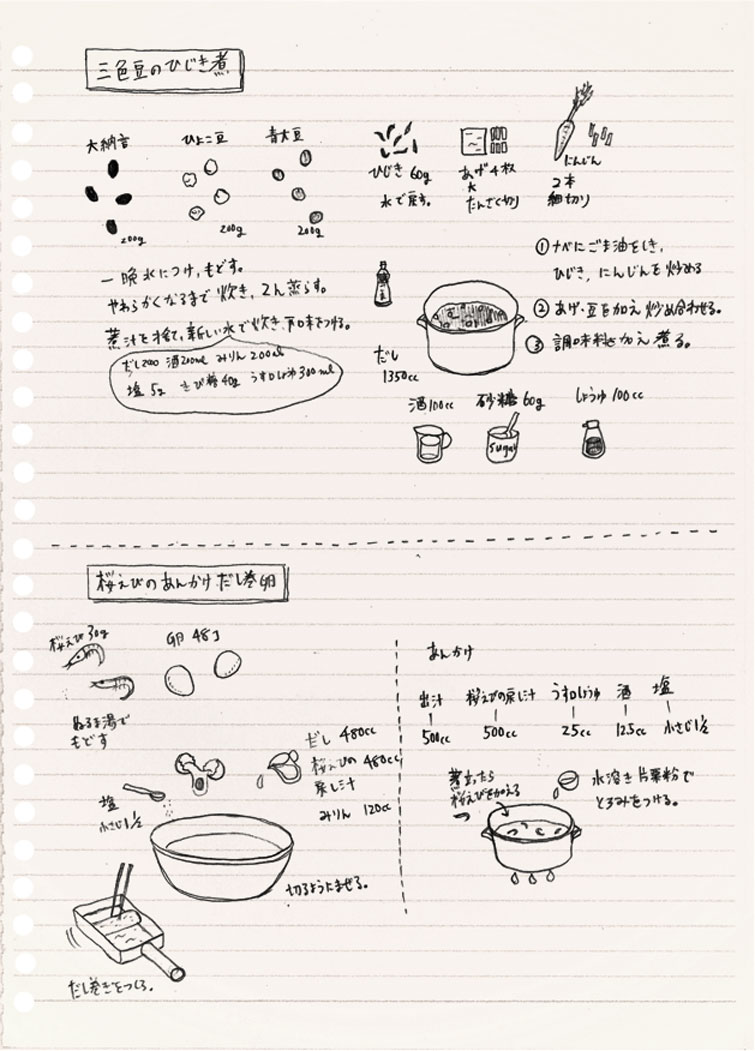 三色豆のひじき煮
大納言
200g
ひよこ豆
200g
青大豆
200g
一晩水につけ、もどす。
やわらかくなるまで炊き、2h蒸らす。
煮汁を捨て、新しい水で炊き、下味をつける。
だし2200 酒200ml みりん200ml
塩 5g きび糖40g うす口しょうゆ300ml
ひじき 60g
水で戻す。
あげ4枚
たんざく切り
にんじん
2本
細切り
①ナベにごま油をしき、
ひじき、にんじんを炒める
②あげ・豆を加え炒め合わせる。
③調味料を加え煮る。
だし
1350cc
酒100cc
砂糖60g
しょうゆ100cc
Sugar
桜えびのあんかけだし巻卵
桜えび30g
ぬるま湯で
もどす
卵 48コ
だし 480cc
桜えびの 480cc
戻し汁
みりん 120cc
塩
小さじ1½
切るようにまぜる。
だし巻きをつくる。
あんかけ
出汁
500cc
桜えびの戻し汁
500cc
うす口しょうゆ
25cc
酒
125cc
塩
小さじ1½
煮立ったら
桜えびを加える
水溶き片栗粉で
とろみをつける。